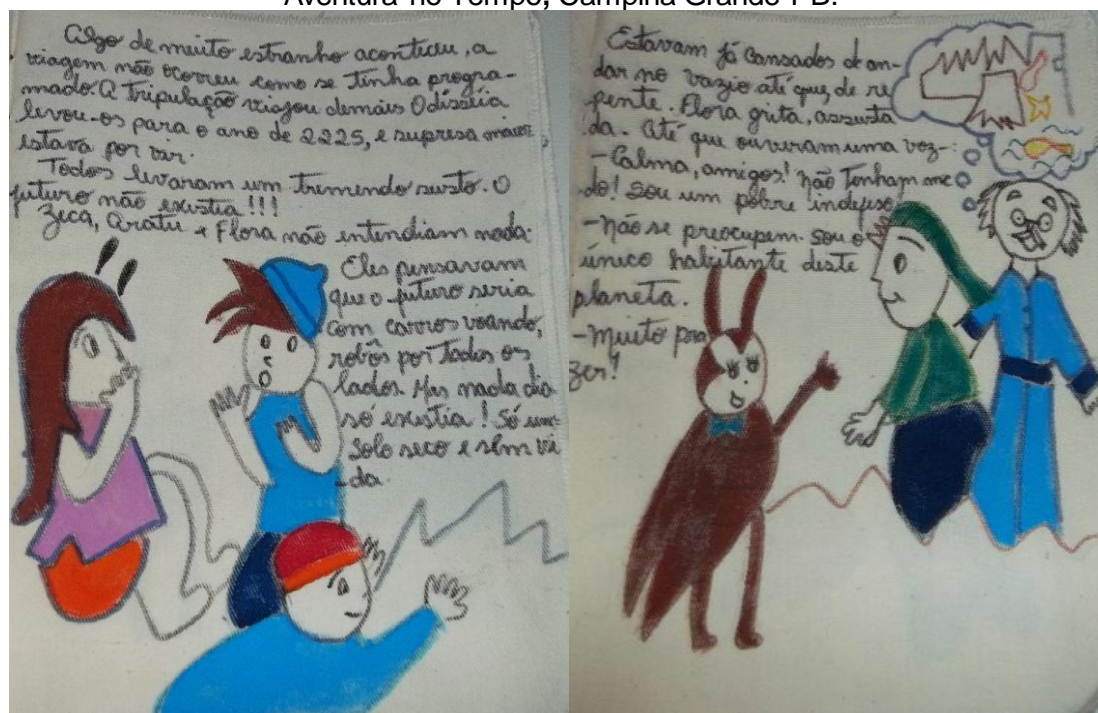 Aventura no Tempo, Campina Grande-PB.
Algo de muito estranho aconteceu, a
viagem não ocorreu como se tinha progra-
mado. A tripulação viajou demais Odisséia
levou-os para o ano de 2225, e supresa maior
estava por vir.
Todos levaram um tremendo susto. O
futuro não existia!!!
Zeca, Aratu e Flora não entendiam nada:
Eles pensavam
que o futuro seria
com carros voando,
robôs por todos os
lados. Mas nada dis
so existia! Só um
solo seco e sem vi
-da.
Estavam já cansados de an-
dar no vazio até que, de re
pente. Flora grita, assusta
da. Até que ouviram uma voz-:
-Calma, amigos! não tenham me
do! Sou um pobre indefeso
-Não se preocupem. Sou o
único habitante deste
planeta.
-Muito pra
zer!